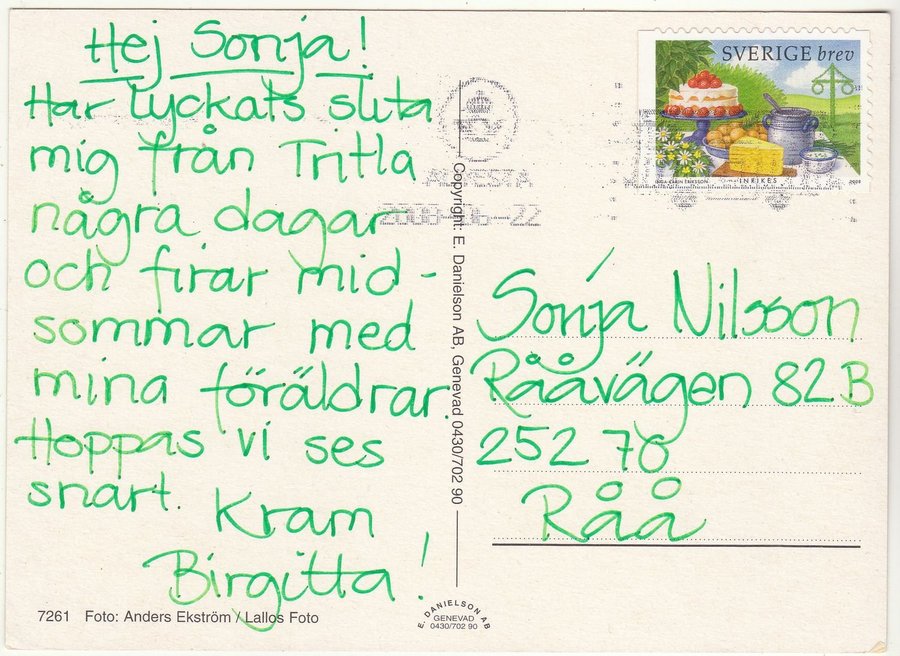 Hej Sonja!
Har lyckats slita
mig från Tritla
några dagar
och firar mid-
sommar med
mina föräldrar.
Hoppas vi ses
snart.
Kram
Birgitta!
7261 Foto: Anders Ekström / Lallos Foto
Copyright: E. Danielson AB, Genevad 0430/702 90
E. DANIELSON AB
GENEVAD
0430/702 90
SVERIGE brev
INRIKES
Sonja Nilsson
Rååvägen 82 B
252 70
Råå